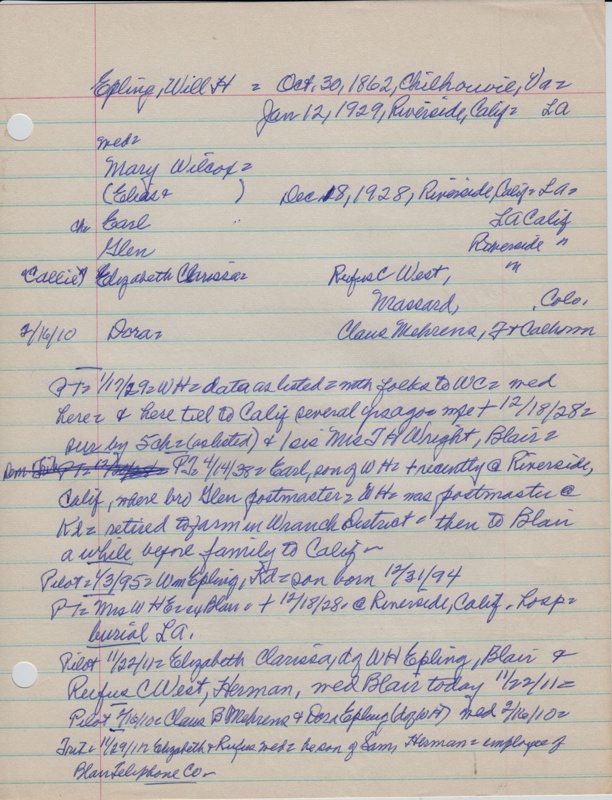 Epling, Will H = Oct, 30, 1862, Chilhowie, Va =
Jan 12, 1929, Riverside, Calif = LA
med =
Mary Wilcox =
(Elias + ) Dec 18, 1928, Riverside, Calif = La =
ch = Earl " LA Calif
Glen Riverside "
"Callie") Elizabeth Clarissa = Rufus C West, "
Massard, Colo,
2/16/10 Dora = Claus Mehrens, Ft Calhoun
PT = 1/17/29 = WH = data as listed = mth folks to WC = med
here = & here til to Calif several yrs ago = mfe + 12/18/28 =
sur by 5ch = (as listed) & 1 sis Mrs T H Wright, Blair =
PT 4/14/38 = Earl, son of WH = + recently @ Riverside,
Calif, where bro Glen postmaster = WH = was postmaster @
Kd = retired to farm in Wranch District = then to Blair
a while before family to Calif ~
Pilot = 1/3/95 = Wm Epling, Kd = son born 12/31/94
PT = Mrs W H E = ex Blair = + 12/18/28 = @ Riverside, Calif. hosp =
burial LA.
Pilot 11/22/11 = Elizabeth Clarissa, dg WH Epling, Blair &
Rufus C West, Herman, med Blair today 11/22/11 =
Pilot 2/16/10 = Claus B Mehrens & Dora Epling (dg WH) med 2/16/10 =
Trib = 11/29/11 = Elizabeth & Rufus med = he son of Sam, Herman = employee of
Blair Telephone Co ~